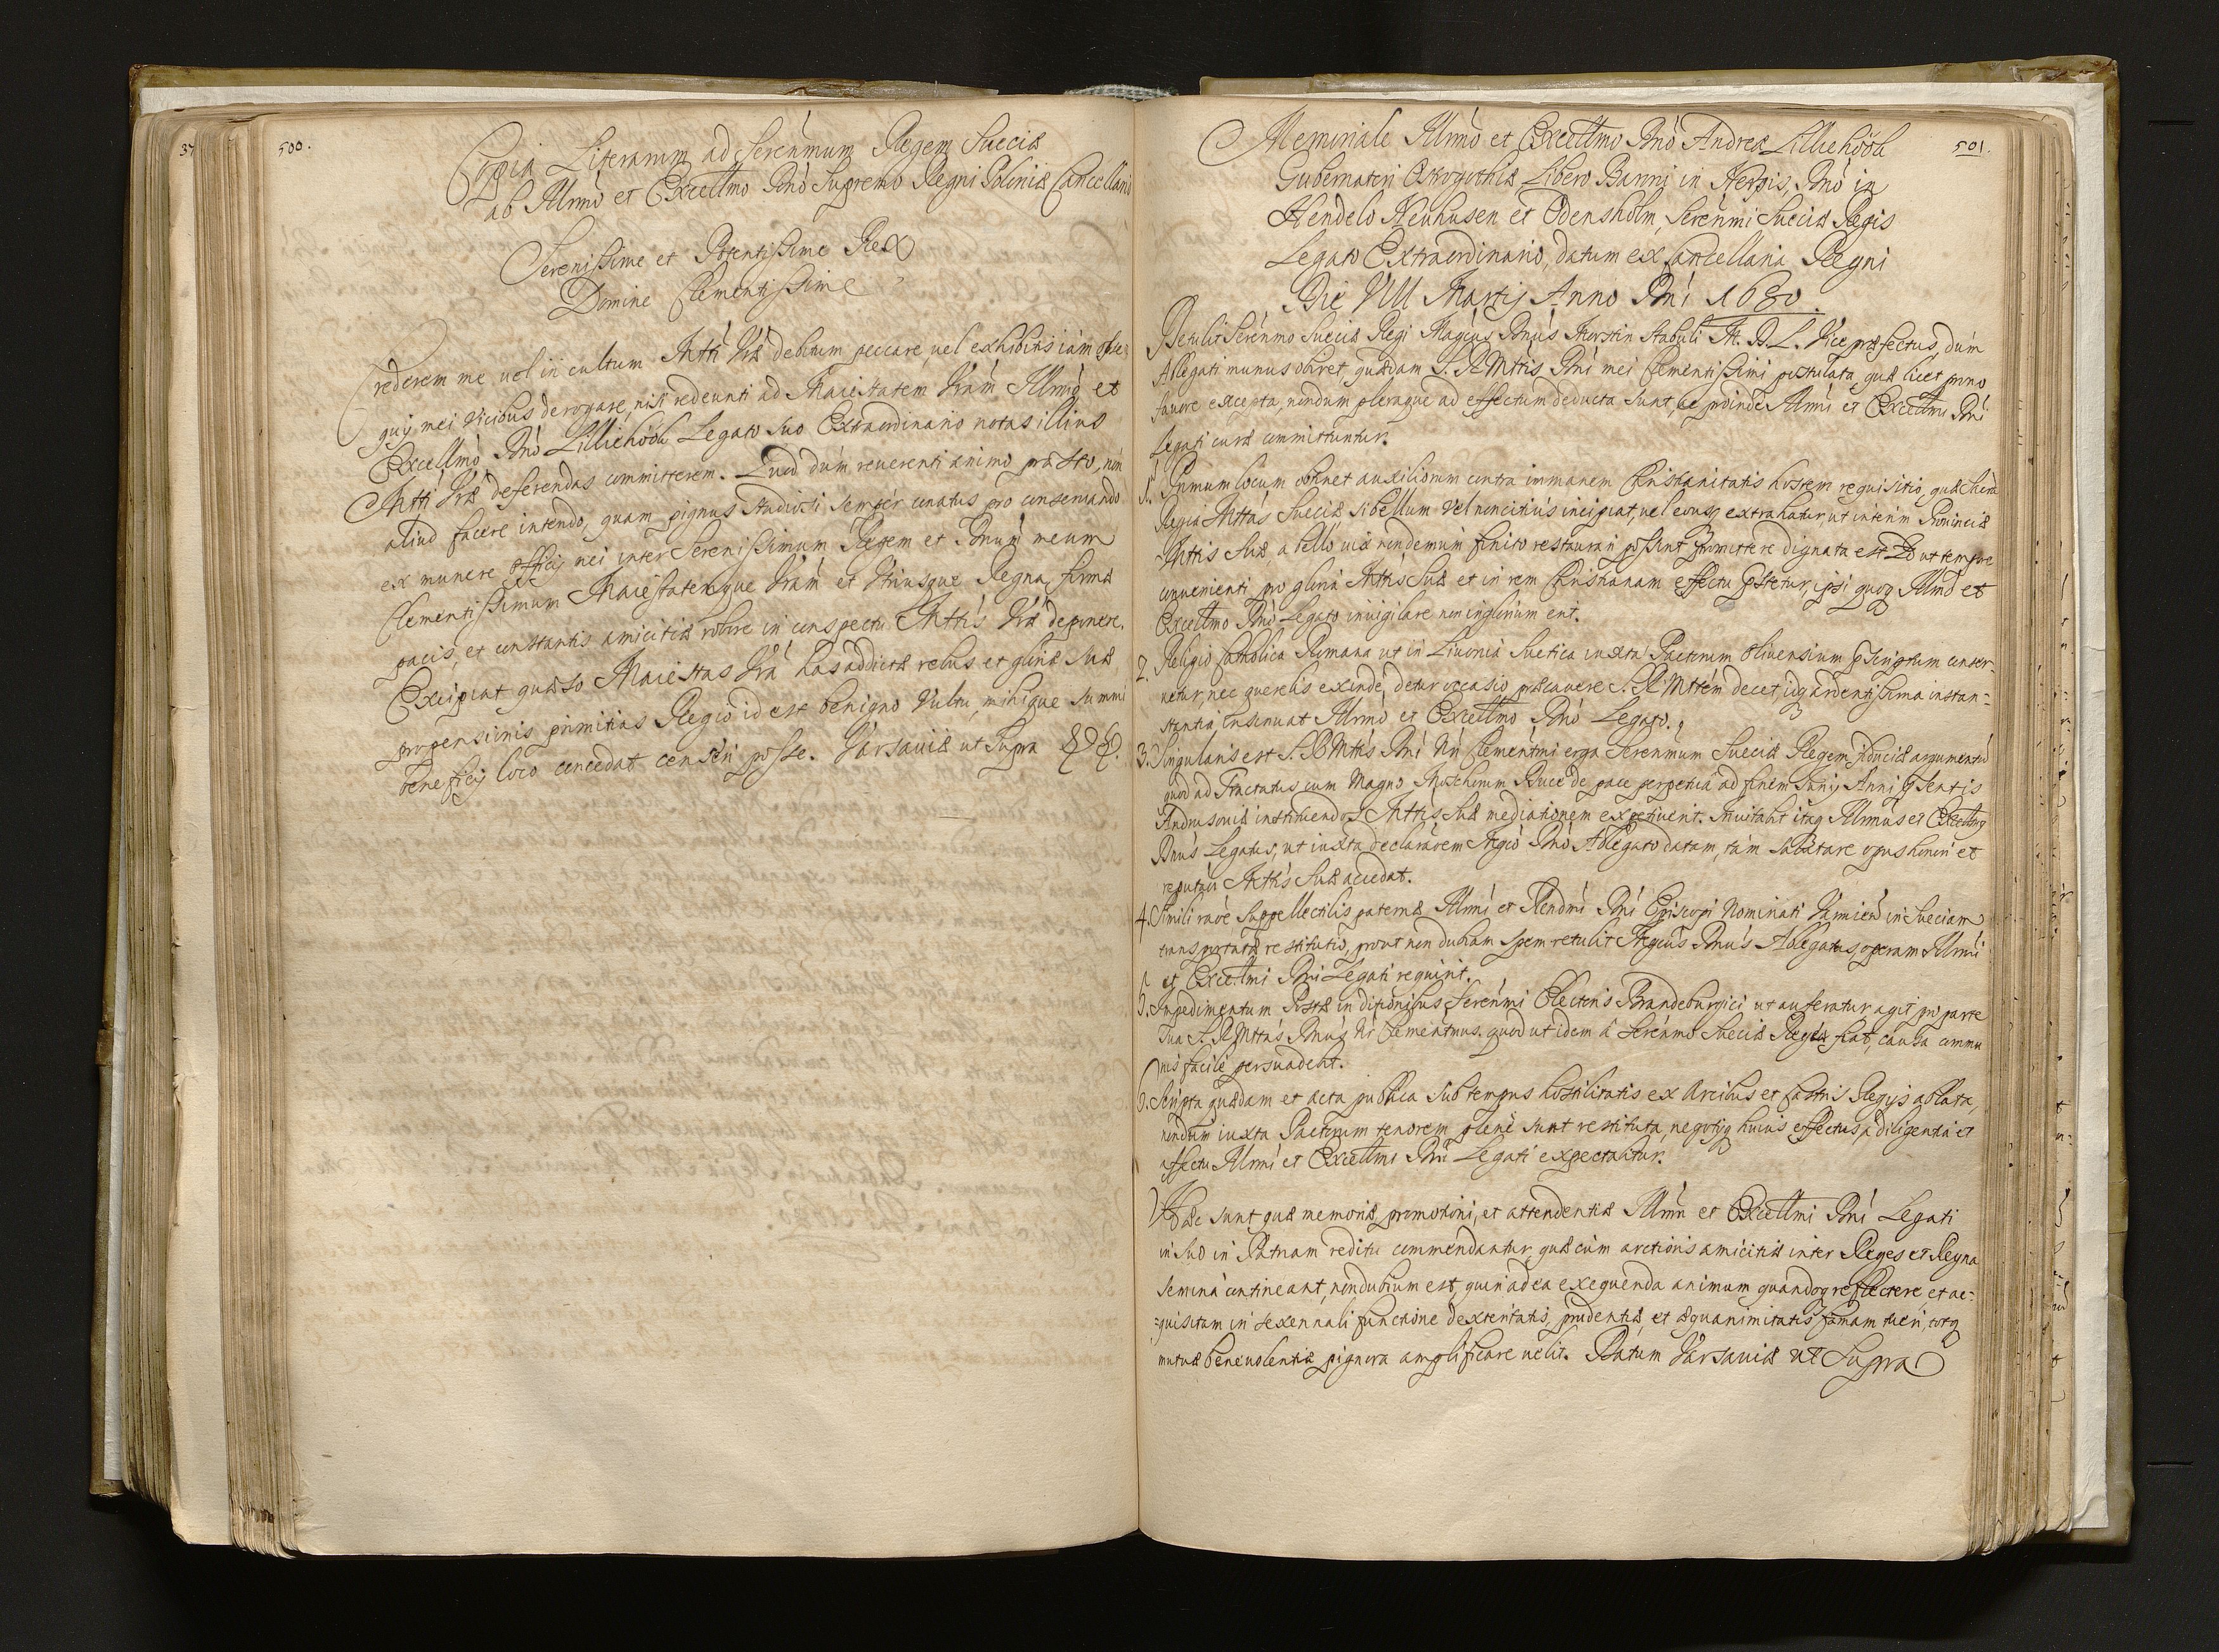 37
500.
Copia Literarum ad Serenmum Regem Sueciæ
ab Illmo et Excellmo Dno Supremo Regni Poloniæ Cancellario
Serenissime et Potentissime Rex
Domine Clementissime
Crederem me vel in cultum Mtti Vræ debitum peccare, vel exhibitis iam obse,
quij mei vicibus derogare, nisi redeunti ad Maiestatem Vram Illmo et
Excellmo Dno Lilliehöök Legato suo Extraordinario notas illius
Mtti Vræ deferendas committerem. Quod dum reverenti animo præsto, non
aliud facere intendo, quam pignus studiosi semper conatus pro conservando
ex munere officij mei inter Serenissimum Regem et Dnum meum
Clementissimum Maiestatemque Vram et Utriusque Regna firmæ
pacis, et constantis amicitiæ robore in conspectu Mttis Vræ deponere.
Excipiat quæso Maiestas Vra has addictæ rebus et gloriæ suæ
propensionis primitias Regio id est benigno Vultu, mihique summi
beneficij loco concedat censeri posse. Varsaviæ ut Supra
501.
Memoriale Illmo et Excellmo Dno Andreæ Lilliehöök
Gubernatori Ostrogothiæ Libero Baroni in Dno in
Hendelo Neuhusen et Odensholm, Serenmi Sueciæ Regis
Legato Extraordinario, datum ex Cancellaria Regni
Die VIII Martij Anno Dni 1680.
Retulit Serenmo Sueciæ Regi Magcus Dnus Morstin Stabuli M. D. L. Vice præfectus, dum
Ablegati munus obiret, quædam S. R Mttis Dni mei Clementissimi postulata, quæ licet prono
favore excepta, nondum pleraque ad effectum deducta sunt, ea proinde Illmi et Excellmi Dni
Legati curæ committuntur.
1. Primum locum obtinet auxiliorum contra immanem Christianitatis hostem requisitio, quæ Sacra
Regia Mttas Sueciæ si bellum vel non citius incipiat, vel eousq extrahatur, ut interim Provinciæ
Mttis Suæ, a bello vix nondemum finito restaurari possint promittere dignata est. Id ut tempore
convenienti pro gloria Mttis Suæ et in rem Christianam effectu præstetur, ipsi quoq Illmo et
Excellmo Dno Legato invigilare non inglorium erit.
2. Religio Catholica Romana ut in Livonia Suetica iuxta Pactorum Olivensium præscriptum conser-
vetur, nec querelis exinde detur occasio præcavere S. R Mttem decet, idq ardentissima instan=
stantia insinuat Illmo et Excellmo Dno Legato.
3. Singularis est S. R Mttis Dni Nri Clementmi erga Serenmum Sueciæ Regem fiduciæ argumentum
quod ad Tractatus cum Magno Moschorum Duce de pace perpetua ad finem Iunij Anni præsentis
Andrusoviæ instituendos Mttis Suæ mediationem expetiverit. Invitabit itaq Illmus et Excellmus
Dnus Legatus, ut iuxta declaraonem Mgco Dno Ablegato datam, tam salutare opus honori et
reputaoi Mttis Suæ accedat.
4. Simili raoe suppellectilis paternæ Illmi et Rendmi Dni Episcopi Nominati Varmien in Sueciam
transportatæ restitutio, prout non dubiam spem retulit Mgcus Dnus Ablegatus, operam Illmi
et Excellmi Dni Legati requirit.
5. Impedimentum Postæ in ditionibus Serenmi Electoris Brandeburgici ut auferatur agit pro parte
sua S. R Mttas Dnus Nr Clementmus. quod ut idem à Serenmo Sueciæ Rege fiat, causa commu
nis facile persuadebit.
6. Scripta quædam et acta publica sub tempus hostilitatis ex Arcibus et Castris Regijs ablata,
nondum iuxta Pactorum tenorem plenè sunt restituta, negotijq huius effectus, a diligentia et
affectu Illmi et Excellmi Dni Legati expectabitur.
Hæc sunt quæ memoriæ, promotioni, et attendentiæ Illmi et Excellmi Dni Legati
in suo in Patriam reditu commendantur, quæ cum arctioris amicitiæ inter Reges et Regna
semina contineant, non dubium est, quin ad ea exequenda animum quandoq reflectere et ac=
=quisitam in sexennali functione dexteritatis, prudentiæ, et æquanimitatis famam tueri, totq
mutuæ benevolentiæ pignora amplificare velit. Datum Varsaviæ ut Supra